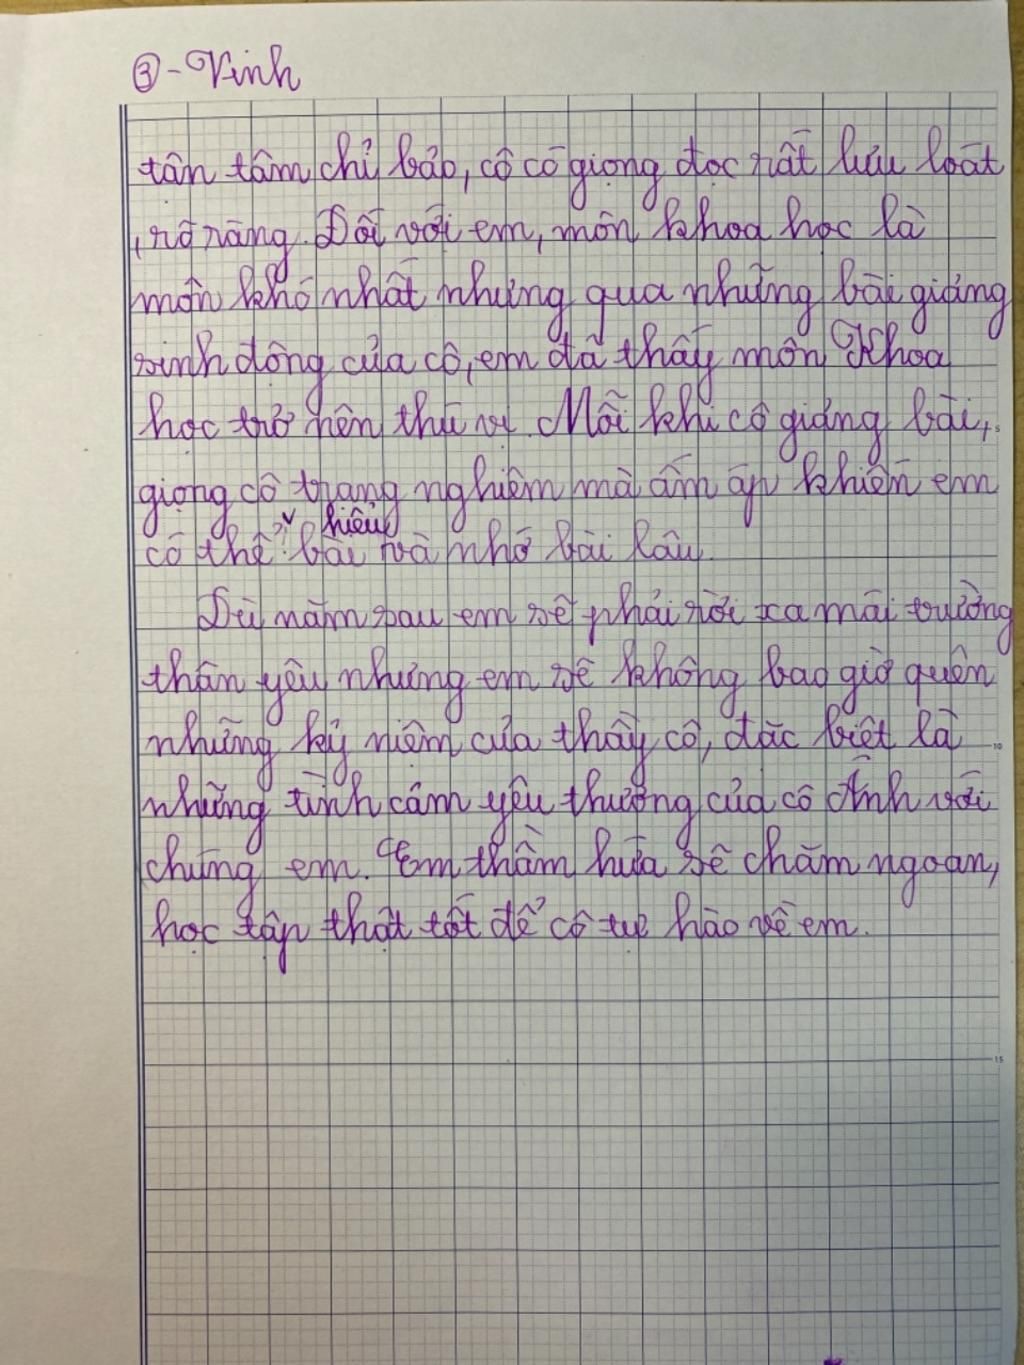 ③ - Vinh
tận tâm chỉ bảo, cô có giọng đọc rất lưu loát
, rõ ràng. Đối với em, môn khoa học là
môn khó nhất nhưng qua những bài giảng
sinh động của cô, em đã thấy môn Khoa
học trở nên thú vị. Mỗi khi cô giảng bài,
giọng cô trang nghiêm mà ấm áp khiến em
có thể hiểu bài và nhớ bài lâu.
Dù năm sau em sẽ phải rời xa mái trường
thân yêu nhưng em sẽ không bao giờ quên
những kỷ niệm của thầy cô, đặc biệt là
10
những tình cảm yêu thương của cô Ánh với
chúng em. Em thầm hứa sẽ chăm ngoan,
học tập thật tốt để cô tự hào về em.
15